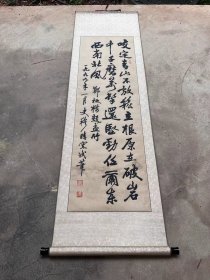 咬定青山不放鬆立根原在破岩
中千磨萬擊還堅勁任爾東
西南北風 鄭板橋題画竹
一九九六年一月